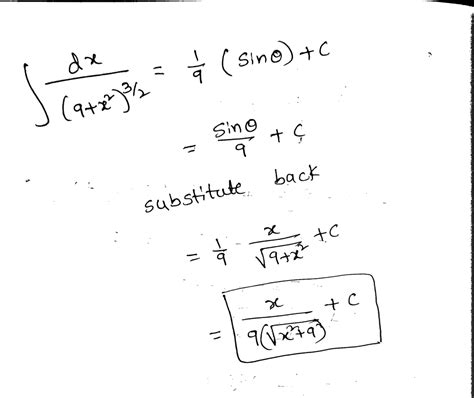 ∫ dx/(9+x²)^3/2 = 1/9 (sinθ)+C
= sinθ/9 + C
substitute back
= 1/9 x/√(9+x²) +C
= x/9(√x²+9) + C